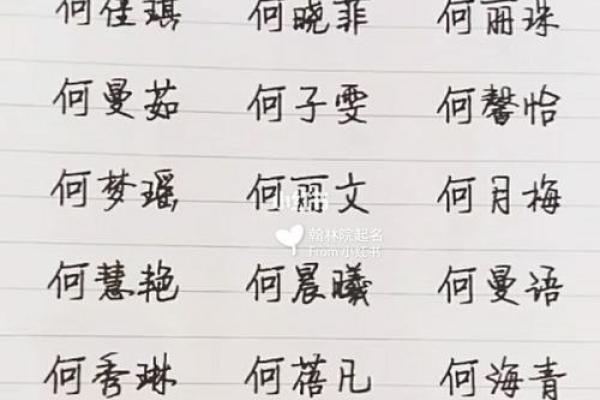 何佳琪 何晓菲 何丽珠
何曼茹 何子雯 何馨怡
何梦瑶 何丽文 何月梅
翰林院起名
From 小红书
何慧艳 何晨曦 何曼语
何秀琳 何蓓凡 何海青